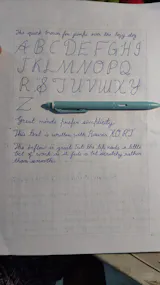 The quick brown fox jumps over the lazy dog
A B C D E F G H I
J K L M N O P Q
R S T U V W X Y
Z
Great minds prefer simplicity
This text is written with
The is great but the nib needs a little
bit of work as it feels a bit scratchy rather
than smooth